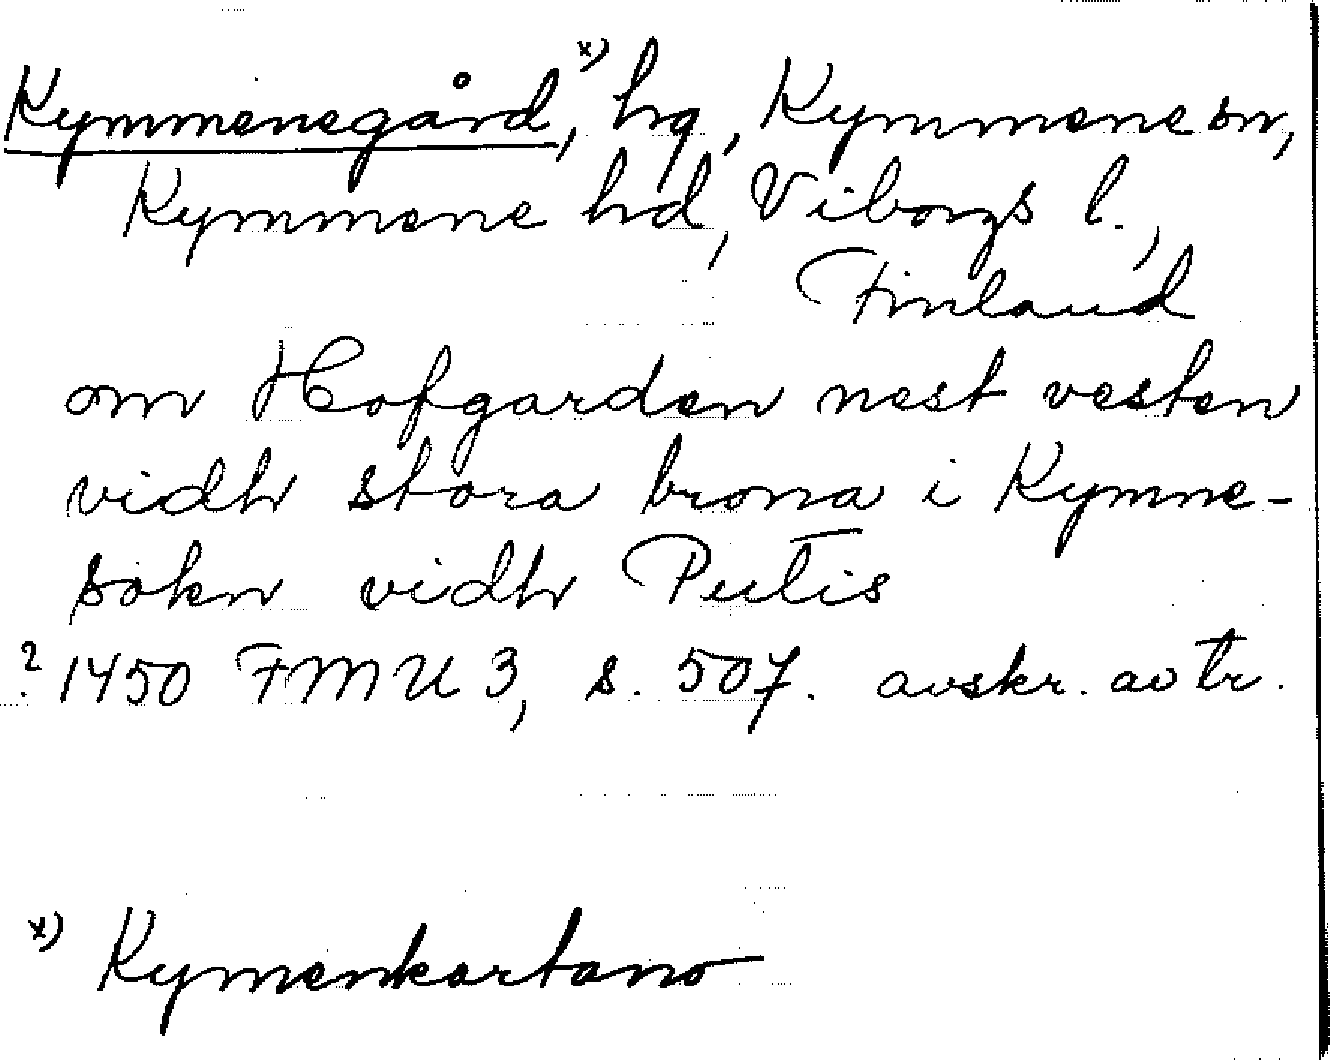 Kymmenegård, x) hg, Kymmene sn,
Kymmene hd, Viborgs l.,
Finland
om Hofgarden nest vesten
vidh stora brona i Kymne-
sokn vidh Putis
? 1450 FMU 3, s. 507. avskr. av tr.
x) Kymenkartano